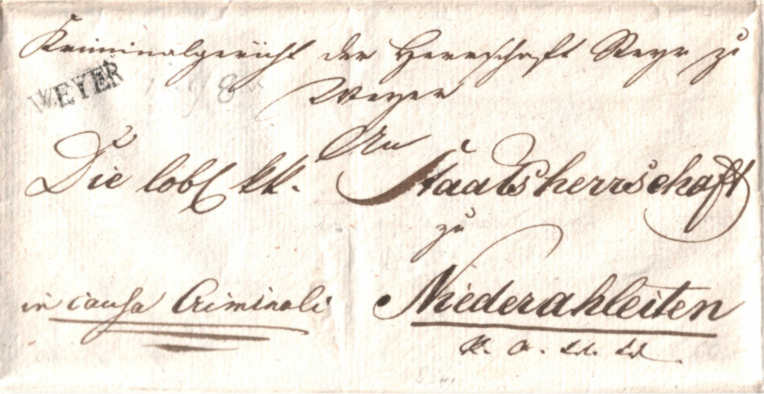 Kriminalgericht der Herrschaft Steyr zu
WEYER
Weyer
An
Die löbl kk. Staatsherrschaft
zu
in causa Criminali Niederahleiten